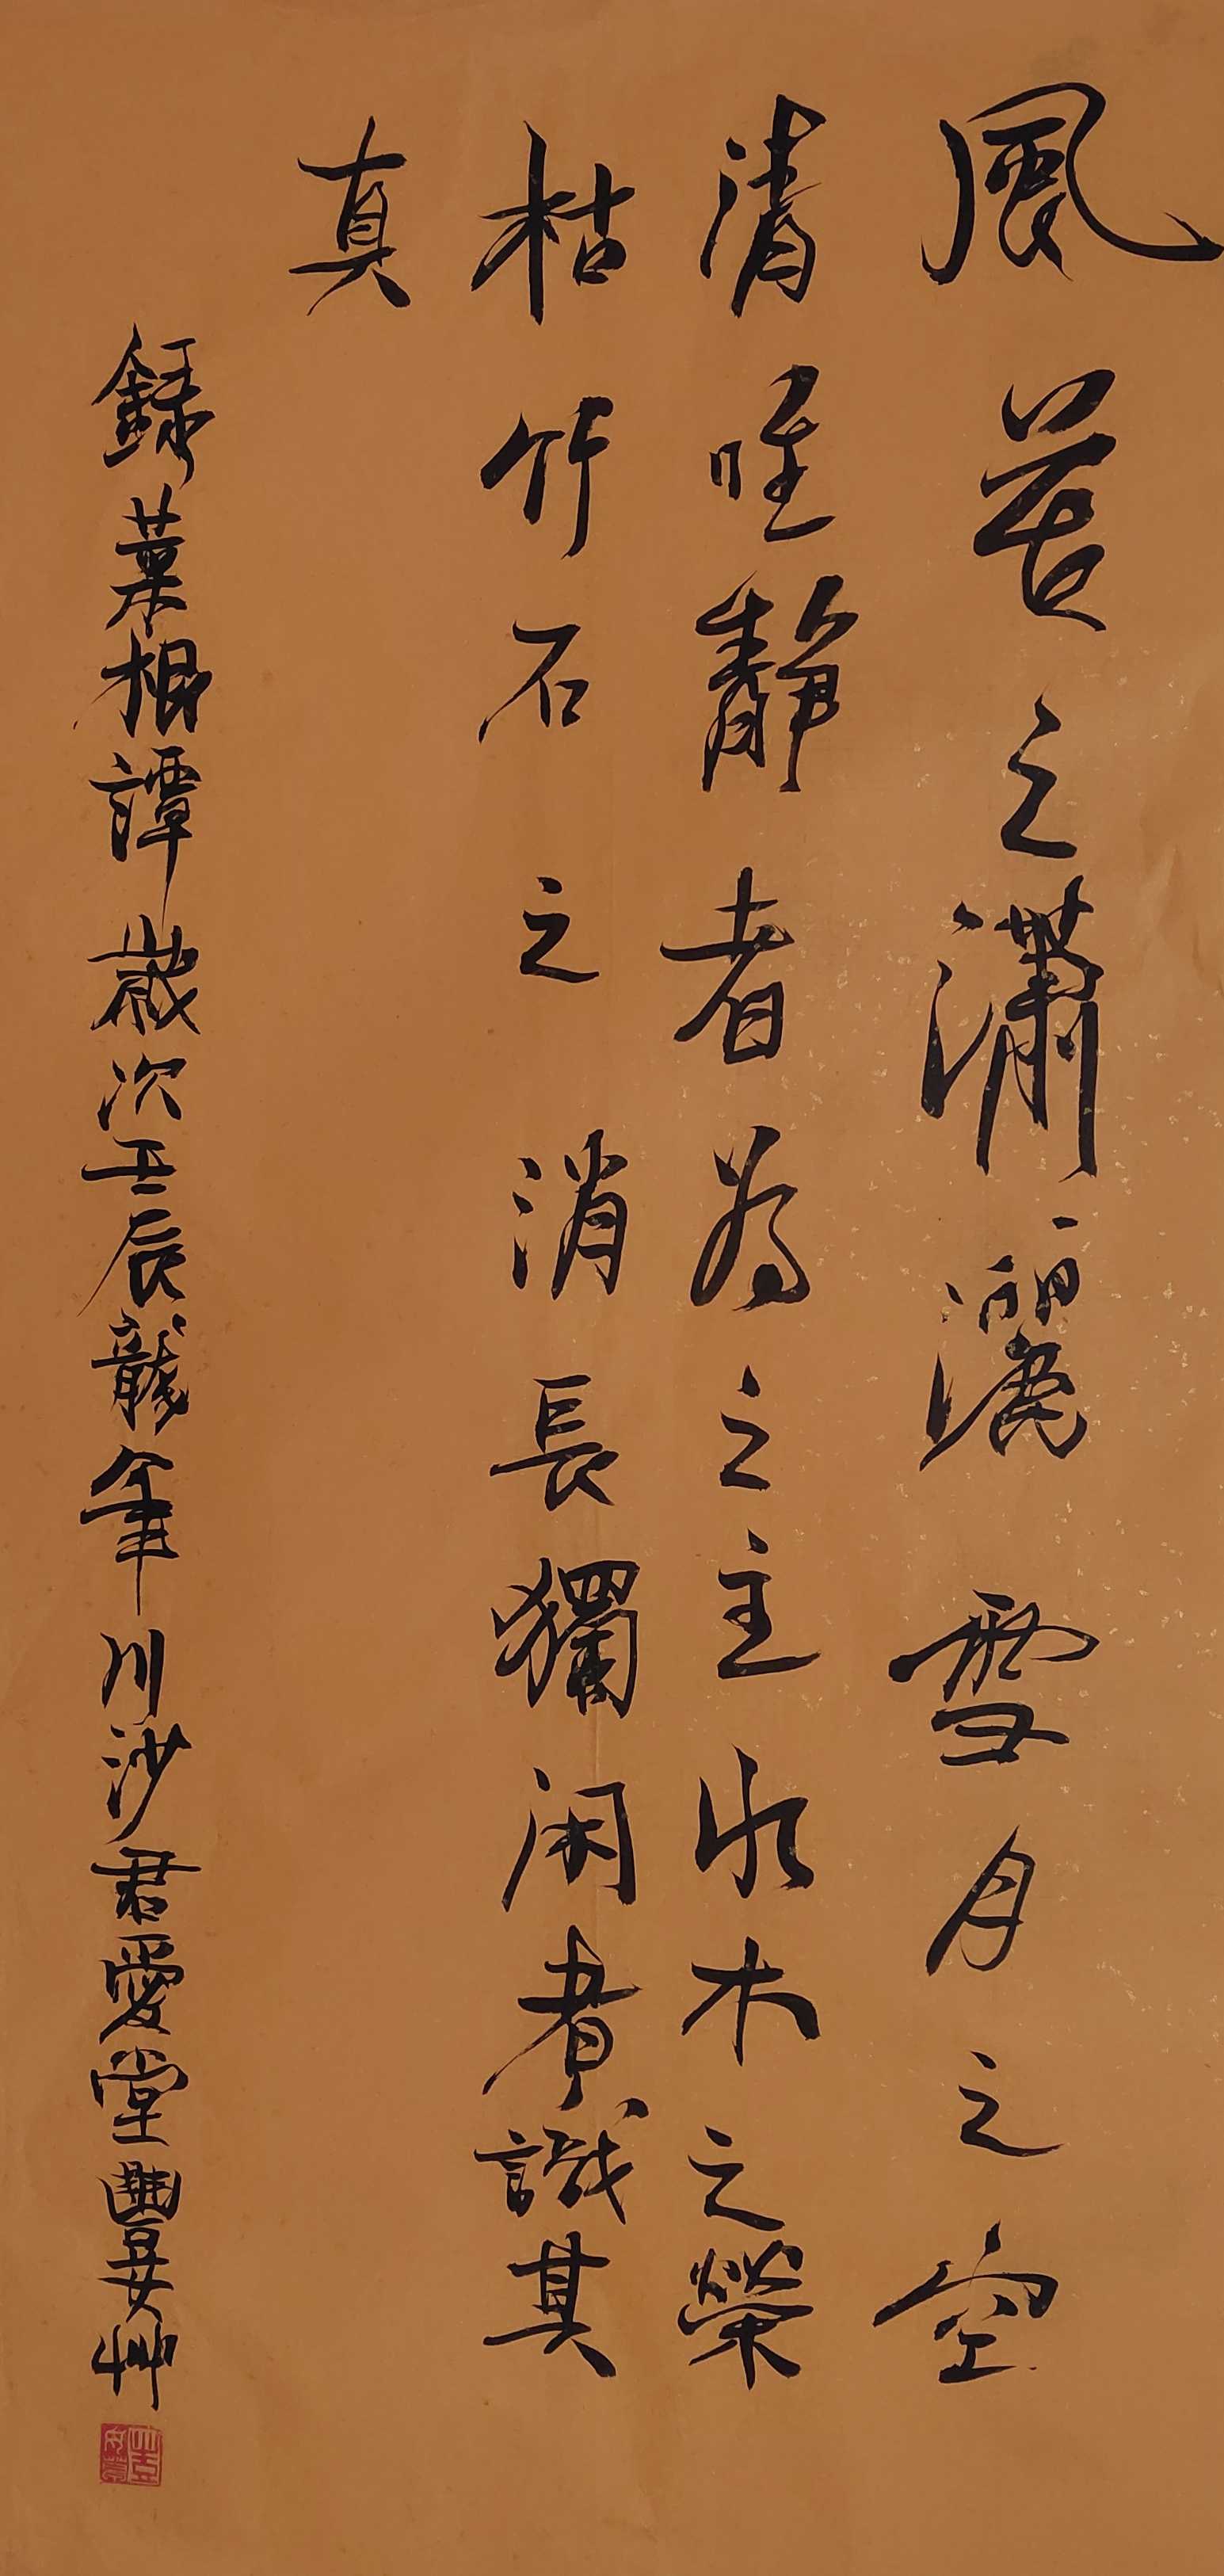 風花之瀟灑雪月之空
清唯靜者為之主水木之榮
枯竹石之消長獨閑者識其
真
錄菜根譚歲次壬辰龍年川沙君愛堂豐安艸